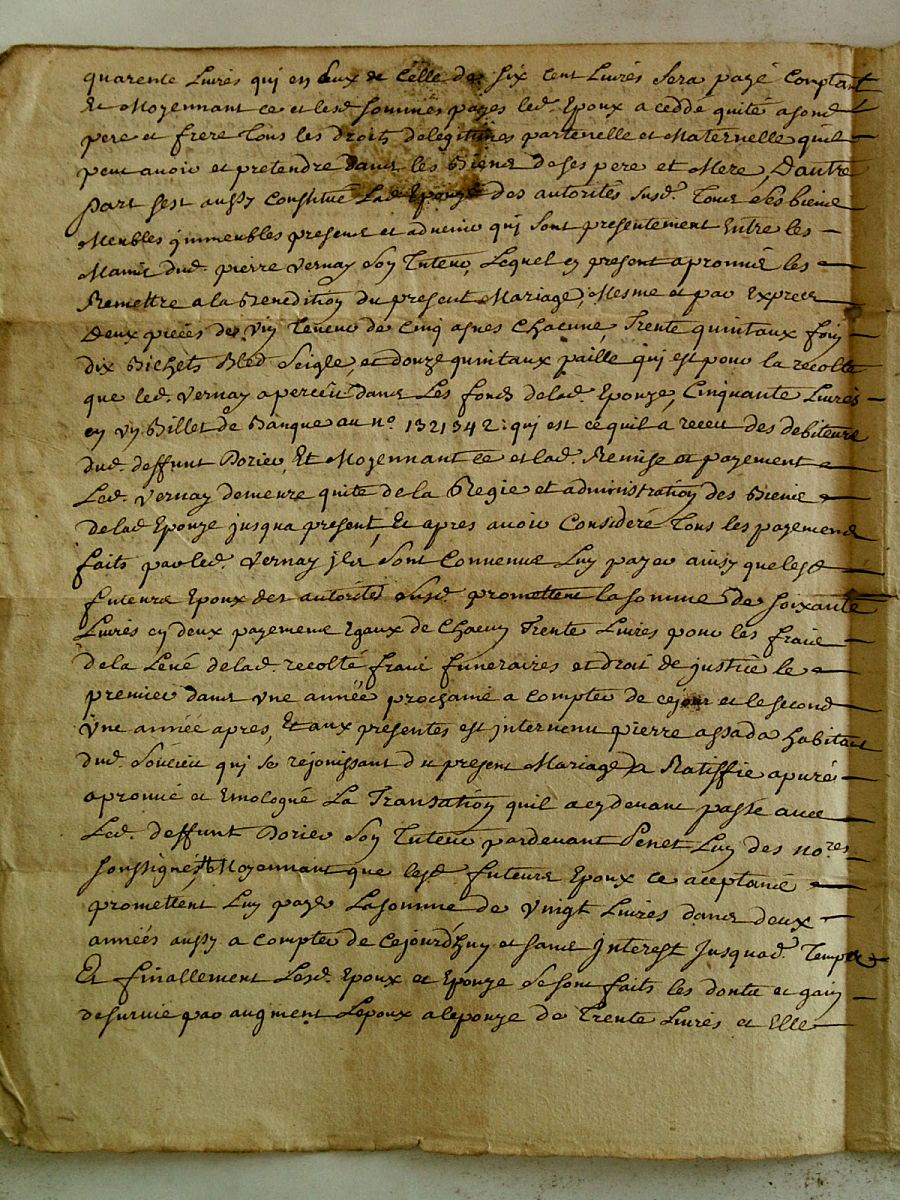 quarente Livres qui en sux de celle des six cent Livres sera payé comptant
Et Moyennant ce et lesd. sommes payes led. Epoux a cedde quité a sond.
pere et frere tous les droits de legitimes parternelle et Maternelle quil
peut avoir et pretendre dans les Biens de ses pere et Mere, D'autre
part sest aussy constitué Lad. Epouze des autorités susd. Tous ses biens
Meubles jmmeubles presens et advenir qui sont presentement Entre les
Mains dud. pierre Vernay son Tuteur, Lequel cy present a promis les
Remettre a la Benedition du present Mariage, Mesme et par Exprers
Deux pieces de vin teneur de cinq asnes chacune, Trente quintaux foin
dix Bichets Bled Seigle, et douze quintaux paille qui est pour la recolte
que led. Vernay a perceüe dans Les fonds de lad. Epouze, Cinquante Livres
en un Billet de Banque au n.o 1321342: qui est ce quil a receu des debiteurs
dud. deffunt Dorier, Et Moyennant ce et lad. Remise et payement
Led. Vernay demeure quite de la Regie et administration des Biens
de lad. Epouze jusqua present, Et apres avoir Consideré Tous les payemens
faits par led. Vernay jls sont Convenus Luy payer ainsy que lesd.
futeurs Epoux des autorités susd. promettent la somme de soixante
Livres en deux payemens Egaux de chacun Trente Livres pour les frais
de la Levé de lad. recolté frais funeraires et droit de justice le
premier dans une année prochaine a compter de ce jour et le second
Une année apres, Et aux presentes est jntervenu pierre assada habitant
dud. Soucieu qui se rejouissant du present Mariage a Ratiffie apuré
aprouvé et Emologué La Transation quil a cydevant passé avec
Led. deffunt Dorier son Tuteur pardevant Penet Luy des no.res
soussignés, Moyennant que lesd. futeurs Epoux ce aceptant
promettent Luy payer La somme de Vingt Livres dans deux
années aussy a compter de cejourd'huy et sans Interest Jusquad. Temps
Et finallement Lesd. Epoux et Epouze se sont faits les dons et gain
de survie par augment Lepoux a lepouze de Trente Livres et Elle